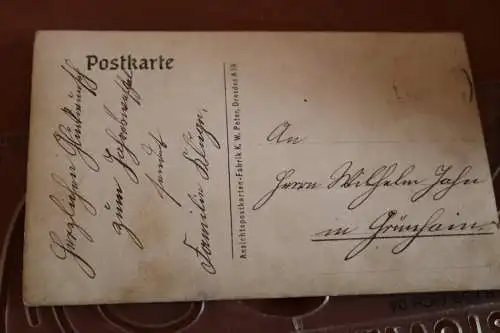 Postkarte
Herzlichen Glückwunsch
zum Jahreswechsel
sendet
Familie Kluge.
Ansichtspostkarten-Fabrik K. W. Peter, Dresden A 19
An
Herrn Wilhelm Jahn
in Grünhain.